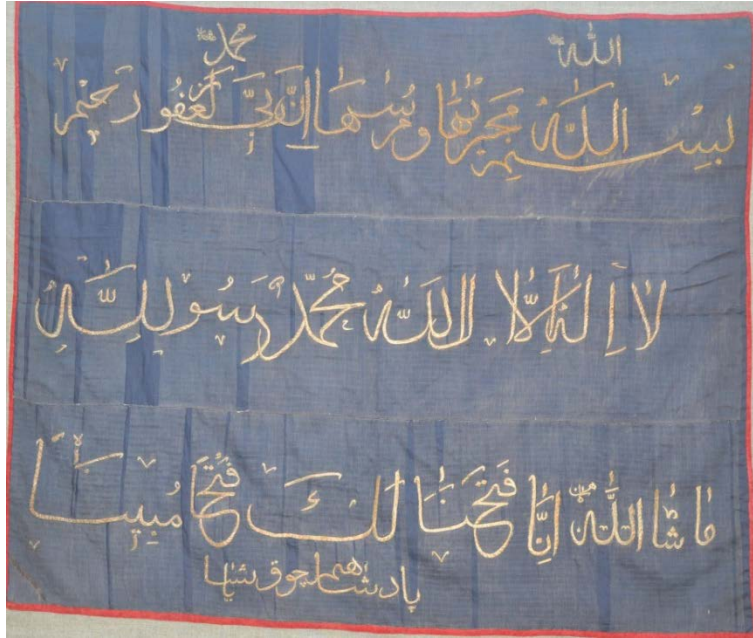 الله محمد
بسم الله مجريها ومرسها إن ربي لغفور رحيم
لا إله إلا الله محمد رسول الله
ما شا الله إنا فتحنا لك فتحا مبينا
پادشاهم چوق يشا